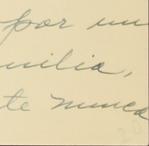 por un
milia,
te nunca